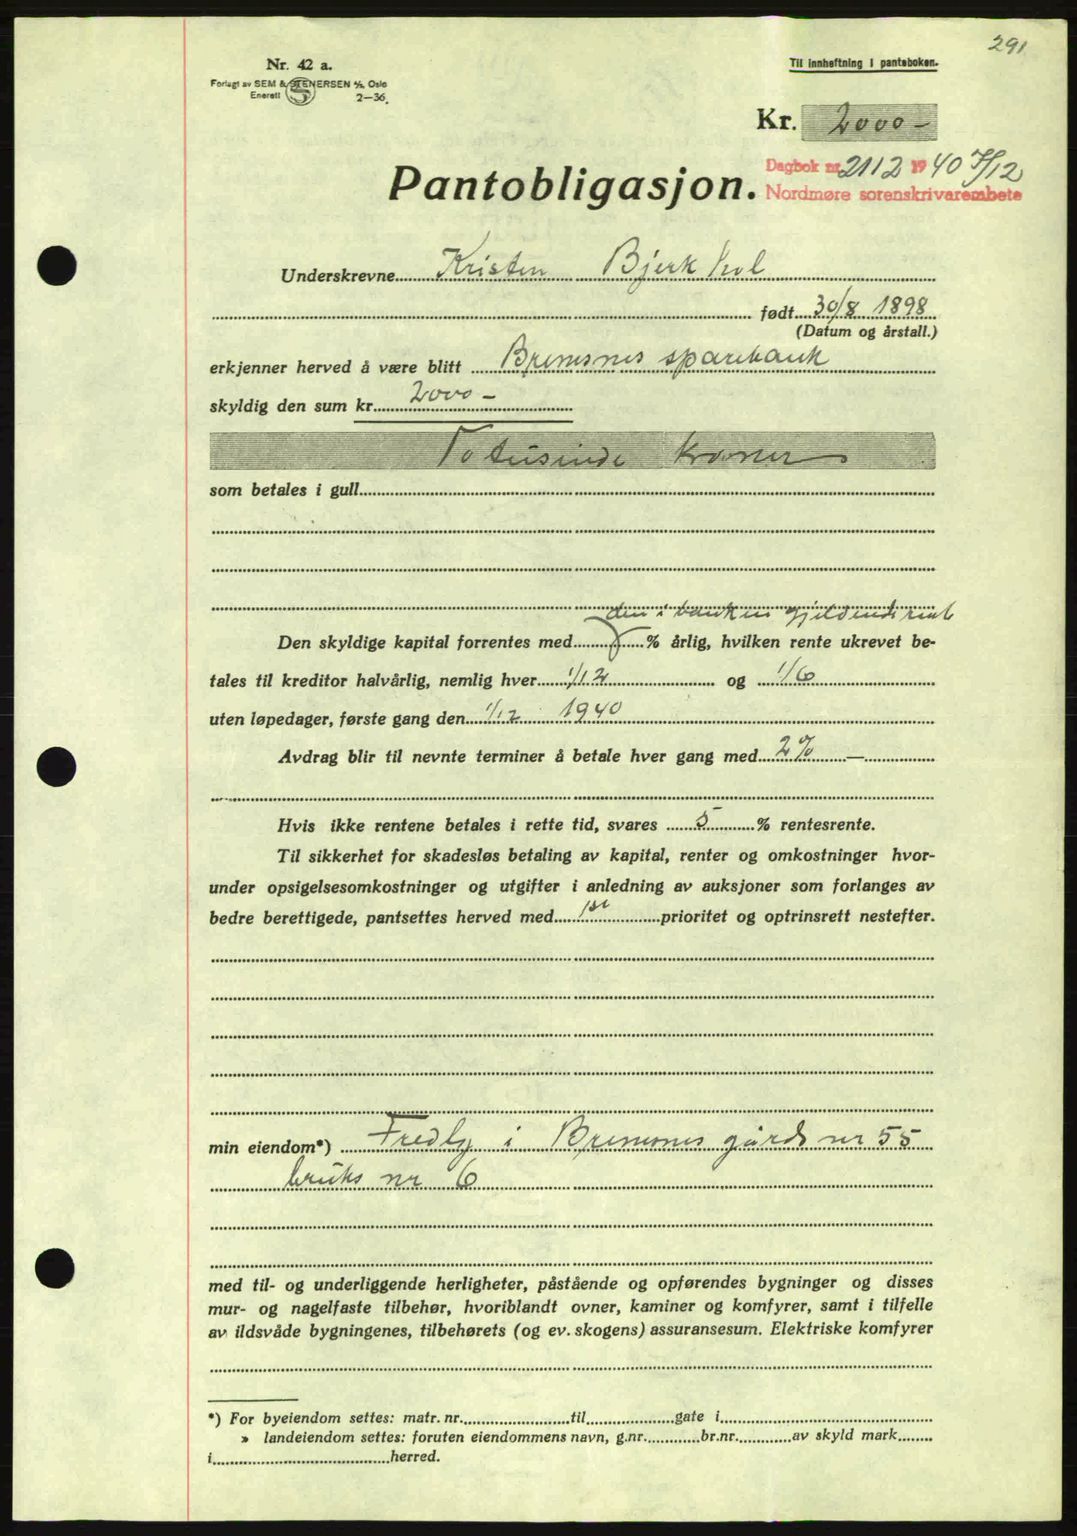 291
Nr. 42 a.
Til innheftning i panteboken.
Forlagt av SEM & STENERSEN A/S, Oslo
Enerett 2—36.
Kr. 2000 –
Dagbok nr. 2112 1940 7/12
Nordmøre sorenskriverembete
Pantobligasjon.
Underskrevne Kristen Bjerkhol
født 30/8 1898
(Datum og årstall.)
erkjenner herved å være blitt Bremsnes sparebank
skyldig den sum kr. 2000 –
To tusinde kroner
som betales i gull
den i banken gjeldende rente
Den skyldige kapital forrentes med % årlig, hvilken rente ukrevet be-
tales til kreditor halvårlig, nemlig hver 1/12 og 1/6
uten løpedager, første gang den 1/12 1940
Avdrag blir til nevnte terminer å betale hver gang med 2% —
Hvis ikke rentene betales i rette tid, svares 5 % rentesrente.
Til sikkerhet for skadesløs betaling av kapital, renter og omkostninger hvor-
under opsigelsesomkostninger og utgifter i anledning av auksjoner som forlanges av
bedre berettigede, pantsettes herved med 1ste prioritet og optrinsrett nestefter.
min eiendom*) Fredly i Bremsnes gårds nr 55
bruks nr 6
med til- og underliggende herligheter, påstående og opførendes bygninger og disses
mur- og nagelfaste tilbehør, hvoriblandt ovner, kaminer og komfyrer, samt i tilfelle
av ildsvåde bygningenes, tilbehørets (og ev. skogens) assuransesum. Elektriske komfyrer
*) For byeiendom settes: matr. nr. til gate i
» landeiendom settes: foruten eiendommens navn, g.nr. br.nr. av skyld mark
i herred.